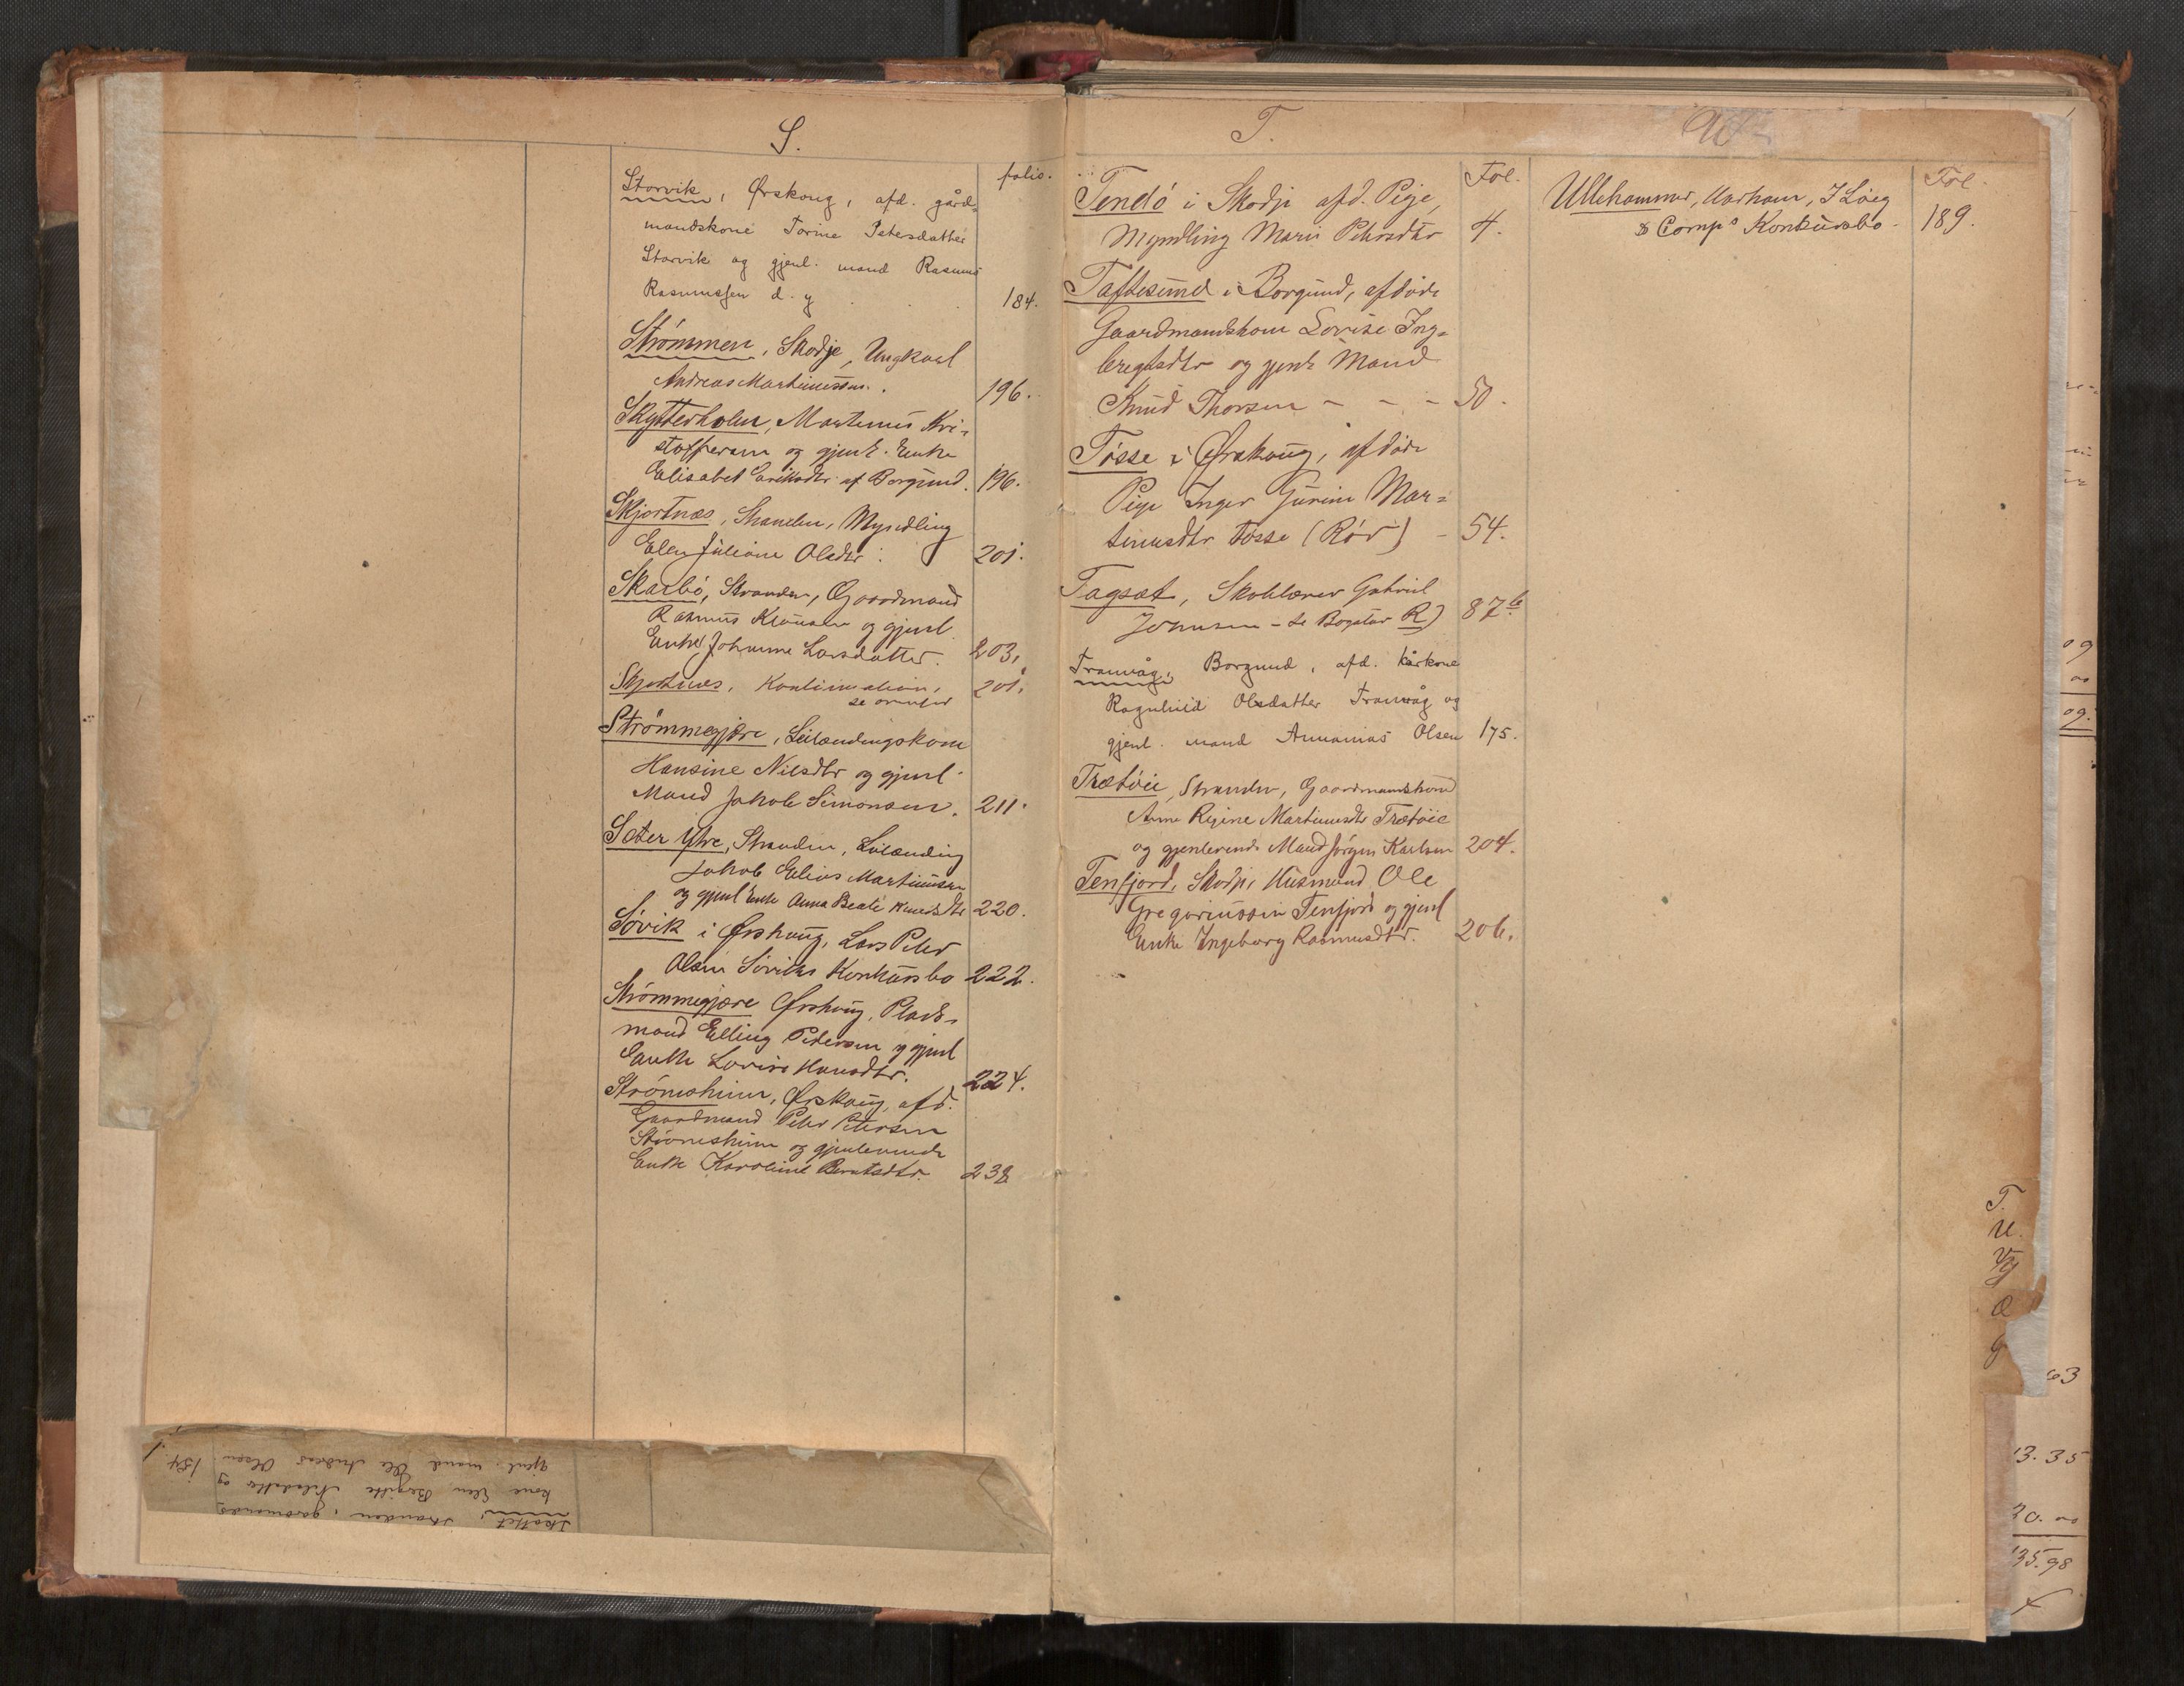 S.
folio.
Storvik, Ørskoug, afd. gård-
mandskone Torine Petersdatter
Storvik og gjenl. mand Rasmus
Rasmussen d. y. 184.
Strömmen, Skodje, Ungkarl
Andreas Martinussen. 196.
Skytterholm, Martinus Kri-
stoffersen og gjenl. Enke
Elisabet Eriksdtr af Borgund. 196.
Skjortnæs, Stranden, Myndling
Elen Juliane Olsdtr. 201.
Skarbö, Stranden, Gaardmand
Rasmus Klausen og gjenl.
Enke Johanne Larsdatter. 203.
Skjortnæs, Kontinuation, 201.
se ovenfor
Strömmegjære, Leilændingskone
Hansine Nilsdtr og gjenl.
Mand Jakob Simonsen. 211.
Sæter Ytre, Stranden, Leilænding
Jakob Elias Martinusen
og gjenl Enke Anna Beate Knudsdtr 220.
Søvik i Ørskoug, Lars Peter
Olsen Söviks Konkursbo 222.
Strömmegjære Ørskoug, Plads-
mand Elling Pedersen og gjenl
Enke Lovise Hansdtr. 224.
Strömsheim, Ørskoug, afd.
Gaardmand Peter Petersen
Strömsheim og gjenlevende
Enke Karoline Berntsdtr. 238
Skottet, Stranden, gårdmands
kone Elen Bergitte Nilsdatter og
gjenl. mand Ole Andreas Olsen 184.
T.
Fol.
Tendö i Skodje afd. Pige,
Myndling Marie Petersdtr 4.
Taftesund i Borgund, afdöde
Gaardmandskone Lovise Ing-
bregtsdtr og gjenl. Mand
Knud Thorsen - - - 50.
Tösse i Ørskoug, afdöde
Pige Inger Gurine Mar-
tinusdtr Tösse (Röv) - 54.
Fagsæt, Skolelærer Gabriel
Johnsen - se Bogstav R) 87 b
Tranvåg, Borgund, afd. kårkone
Ragnhild Olsdatter Tranvåg og
gjenl. mand Annanias Olsen 175.
Trætöie, Stranden, Gaardmandskone
Anne Regine Martinusdtr Trætöie
og gjenlevende Mand Jörgen Karlsen 204.
Tenfjord, Skodje, Husmand Ole
Gregoriussen Tenfjord og gjenl
Enke Ingeborg Rasmusdtr. 206.
U
Fol.
Ullehammer, Aarhaun, I Löeg
& Comps Konkursbo. 189.
09
09.
T.
U.
Æ
63
13.35
20.
135.98